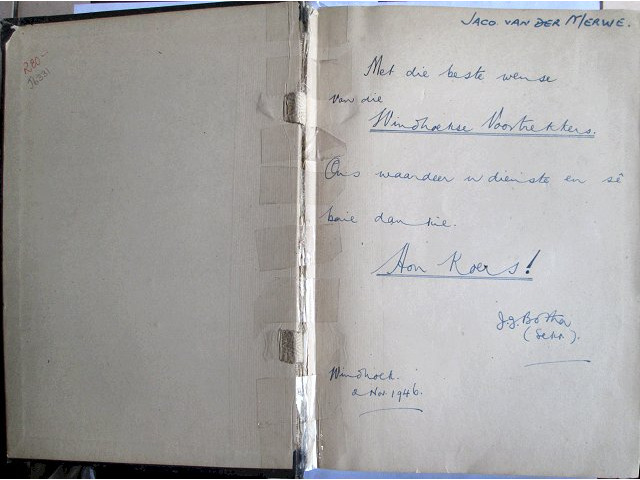 R80-
JACO VAN DER MERWE.
Met die beste wense
van die
Windhoekse Voortrekkers.
Ons waardeer u dienste en sê
baie dankie.
Hou Koers!
J.J. Botha
(Sekr.).
Windhoek.
2 Nov. 1946.